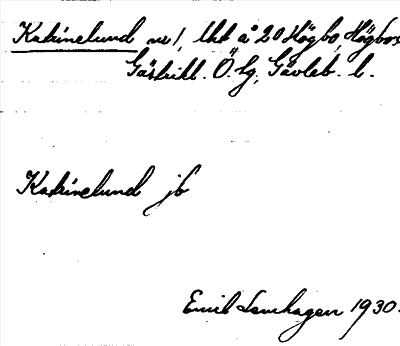 Katrinelund nr 1, lht å 20 Högbo, Högbo s
Gästrikl. Ö. tg. Gävleb. l.
Katrinelund jb
Emil Lenhagen 1930.